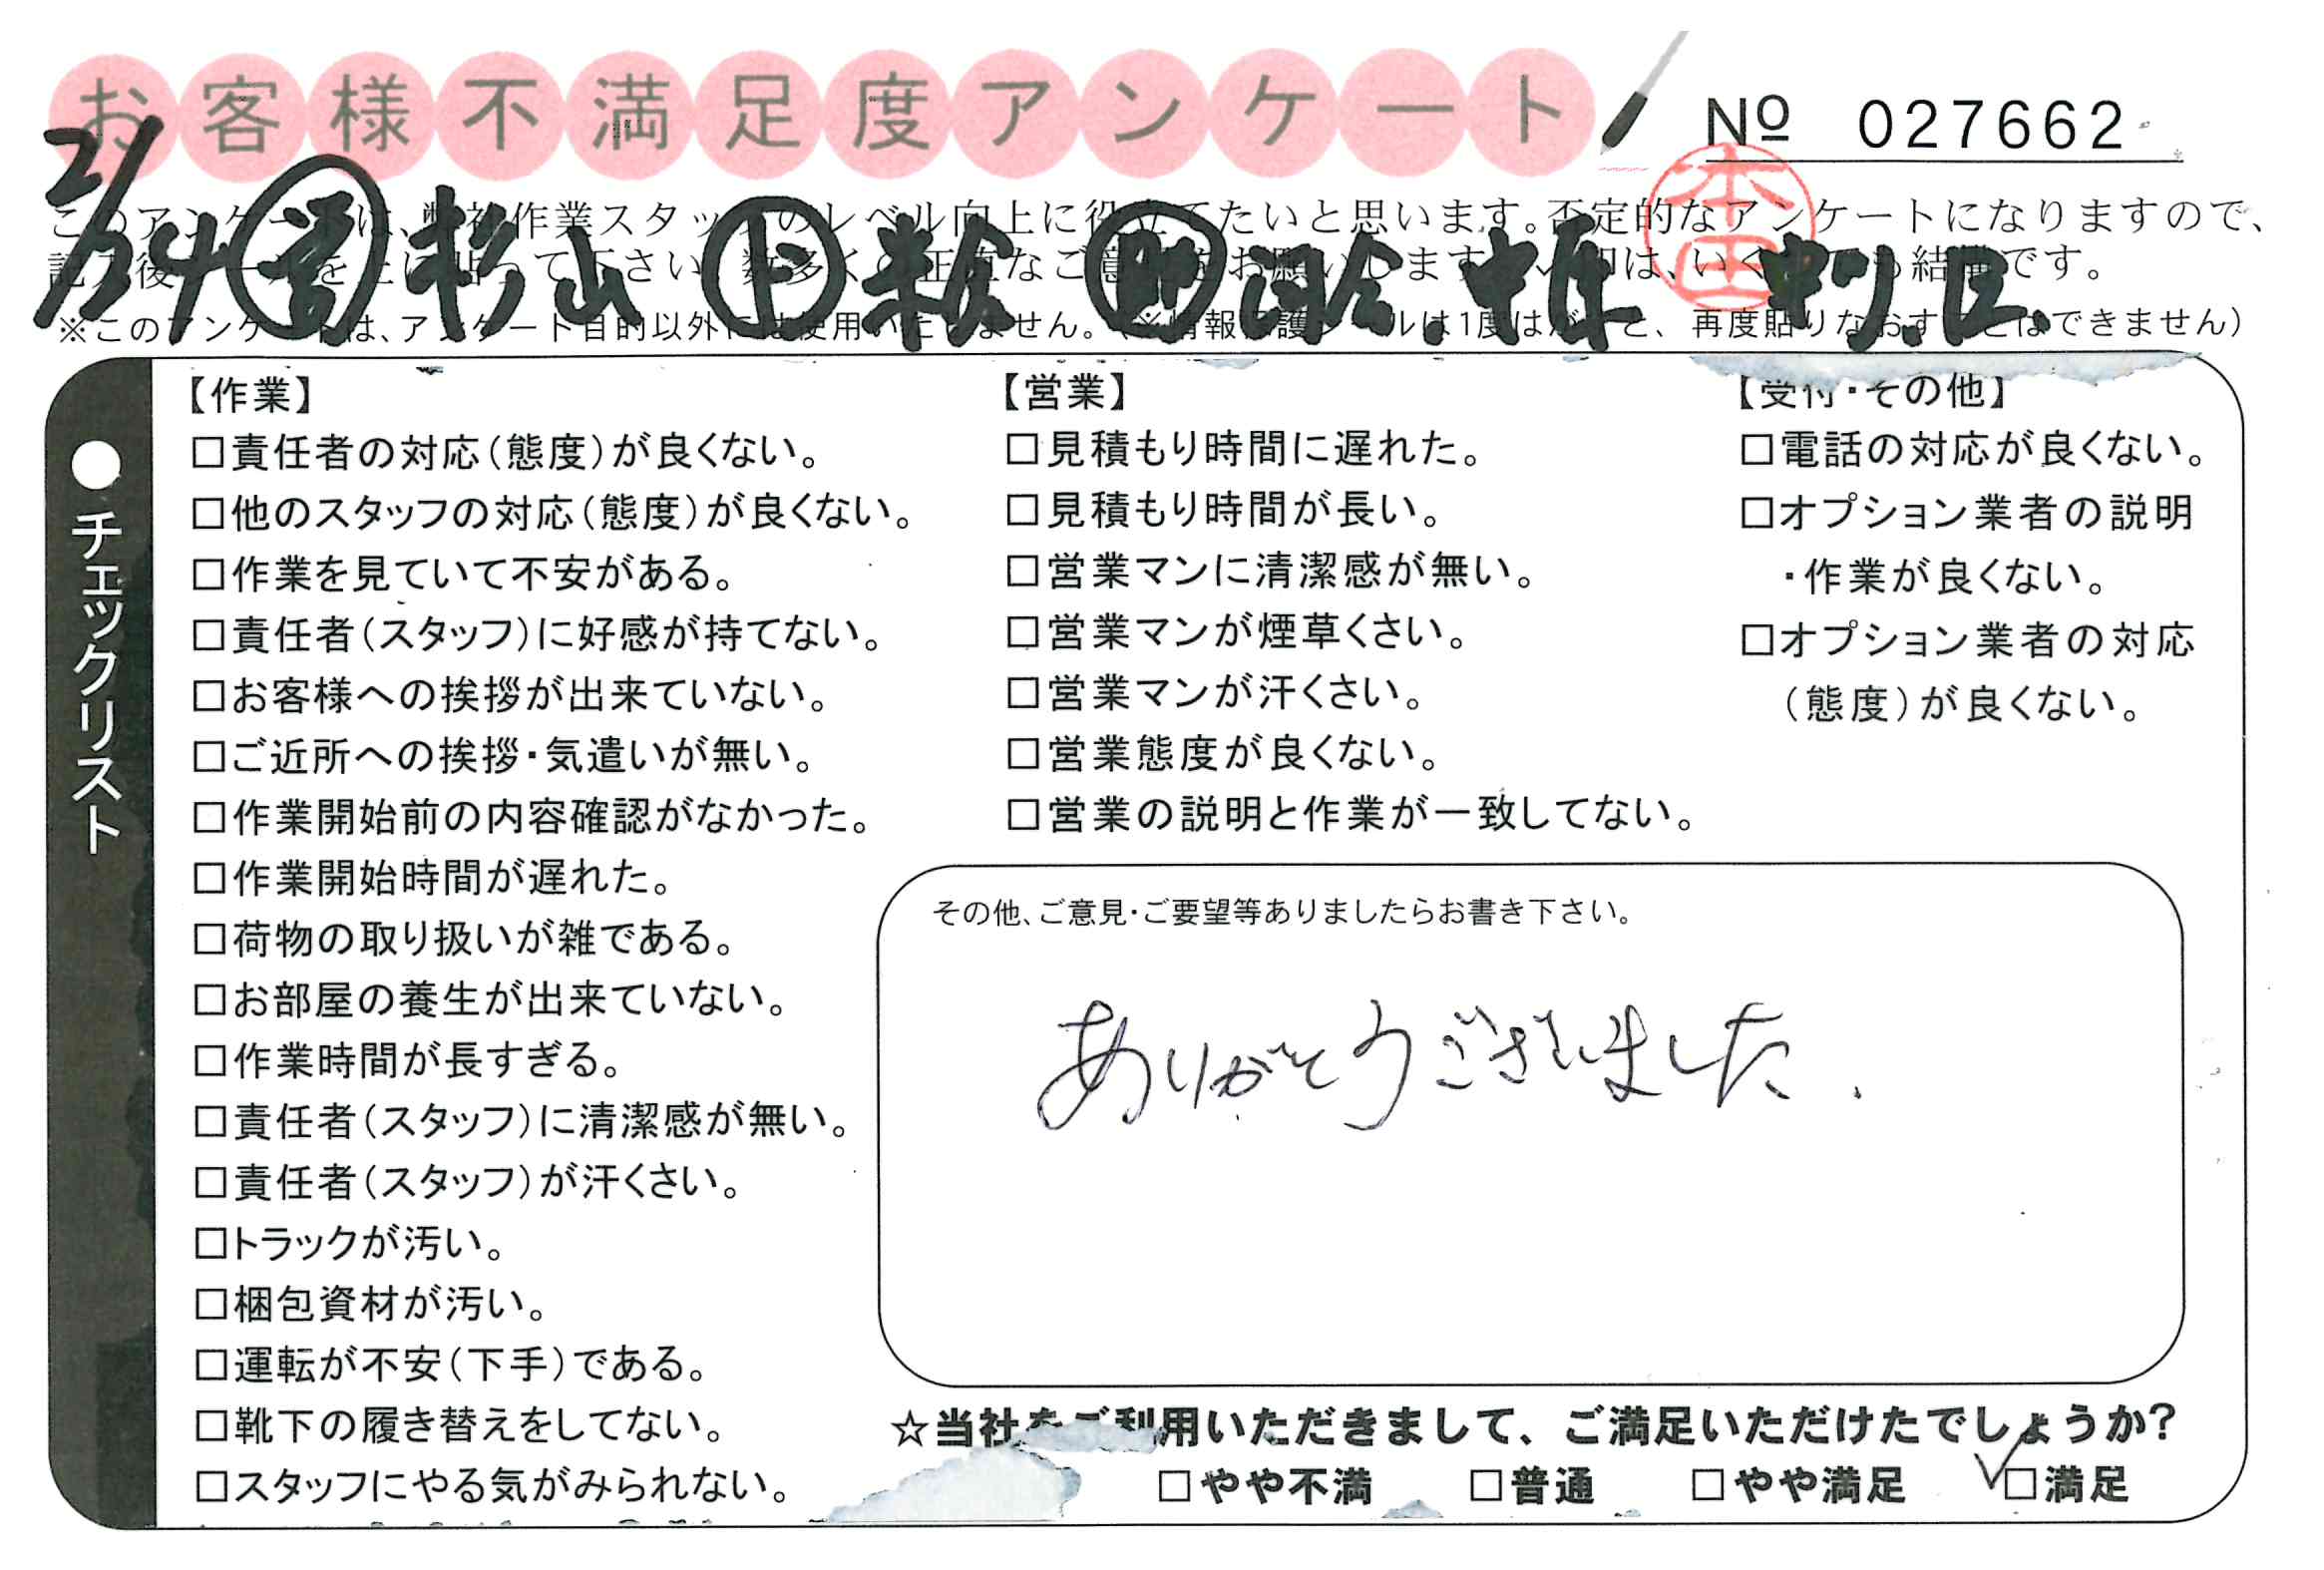 お客様不満足度アンケート
No 027662
2/24 営 杉山 ト 助
本田
※このアンケートは、アンケート目的以外には使用いたしません。(※情報保護シールは1度はがすと、再度貼りなおすことはできません)
●チェックリスト
【作業】
□責任者の対応(態度)が良くない。
□他のスタッフの対応(態度)が良くない。
□作業を見ていて不安がある。
□責任者(スタッフ)に好感が持てない。
□お客様への挨拶が出来ていない。
□ご近所への挨拶・気遣いが無い。
□作業開始前の内容確認がなかった。
□作業開始時間が遅れた。
□荷物の取り扱いが雑である。
□お部屋の養生が出来ていない。
□作業時間が長すぎる。
□責任者(スタッフ)に清潔感が無い。
□責任者(スタッフ)が汗くさい。
□トラックが汚い。
□梱包資材が汚い。
□運転が不安(下手)である。
□靴下の履き替えをしてない。
□スタッフにやる気がみられない。
【営業】
□見積もり時間に遅れた。
□見積もり時間が長い。
□営業マンに清潔感が無い。
□営業マンが煙草くさい。
□営業マンが汗くさい。
□営業態度が良くない。
□営業の説明と作業が一致してない。
【受付・その他】
□電話の対応が良くない。
□オプション業者の説明
・作業が良くない。
□オプション業者の対応
(態度)が良くない。
その他、ご意見・ご要望等ありましたらお書き下さい。
ありがとうございました.
☆当社をご利用いただきまして、ご満足いただけたでしょうか?
□やや不満 □普通 □やや満足 ✓□満足